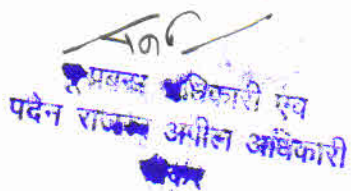 भू प्रबन्ध अधिकारी एवं
पदेन राजस्व अपील अधिकारी